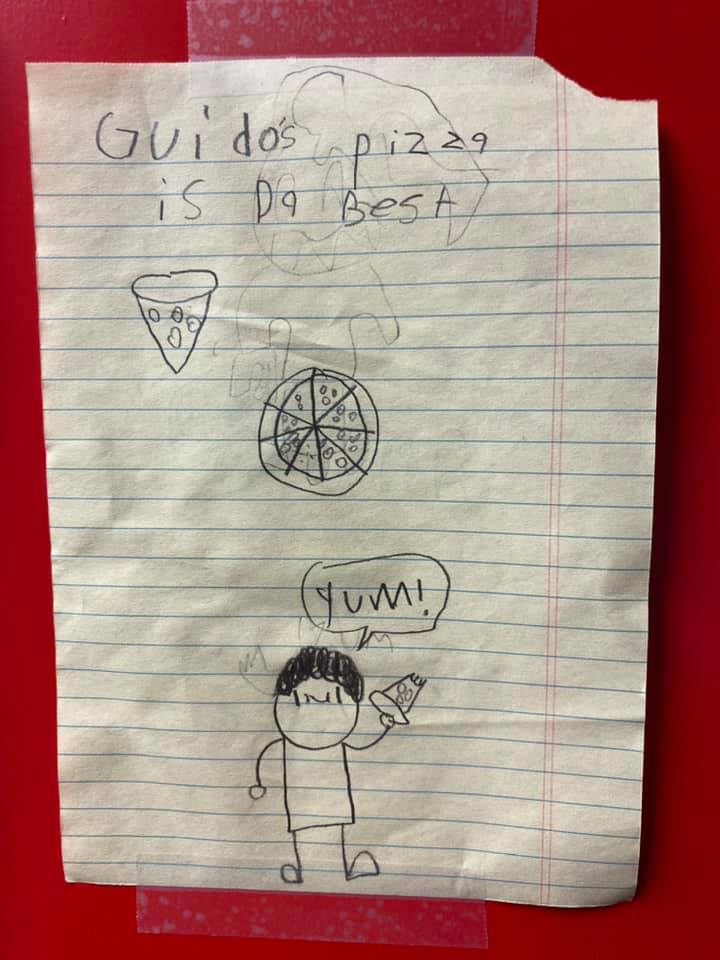 Guido's pizza
is Da BesT
YUM!